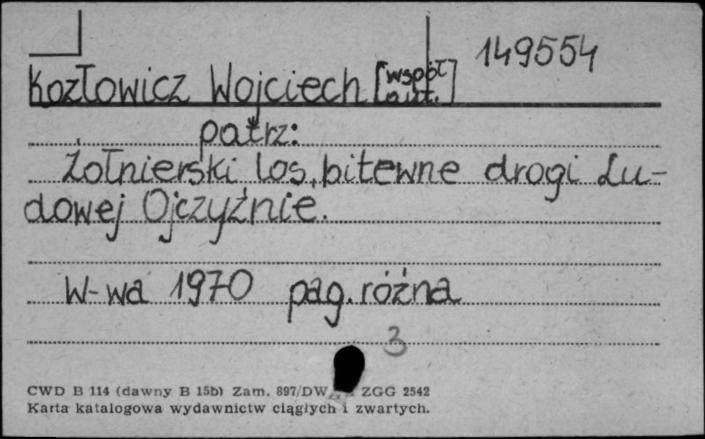 149554
Kozłowicz Wojciech [współ aut.]
patrz:
Żołnierski los, bitewne drogi Lu-
dowej Ojczyźnie.
W-wa 1970 pag. różna
3
CWD B 114 (dawny B 15b) Zam. 897/DW ZGG 2542
Karta katalogowa wydawnictw ciągłych i zwartych.